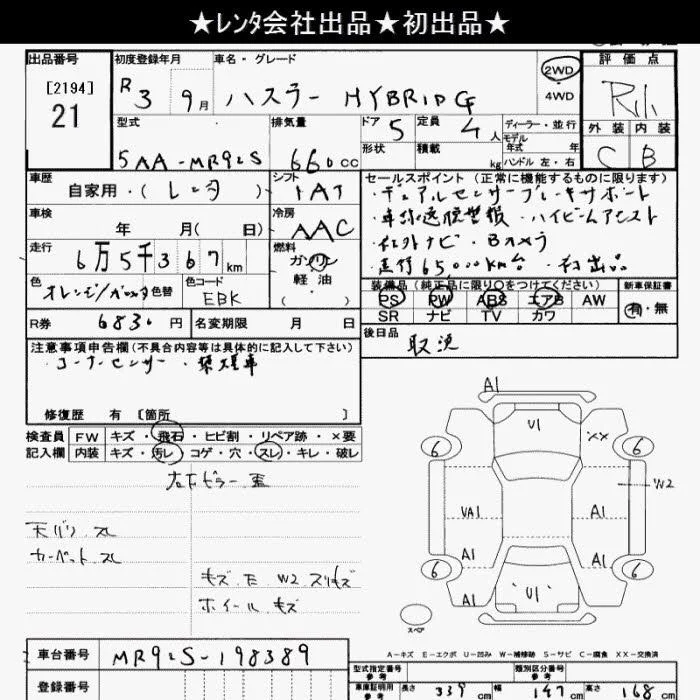 ★レンタ会社出品★初出品★
出品番号
[2194]
21
初度登録年月
R 3 9月
車名・グレード
ハスラー HYBRID G
2WD
4WD
評価点
型式
5AA-MR92S
排気量
660cc
ドア
5
定員
4人
形状
積載
kg
ディーラー・並行
モデル
年式 年
ハンドル 左・右
外装 内装
C B
車歴
自家用・(レンタ)
シフト
IAT
セールスポイント(正常に機能するものに限ります)
・デュアルセンサーブレーキサポート
・車線逸脱警報・ハイビームアシスト
・社外ナビ・Bカメラ
・走行65,000km台・初出品
車検
年 月( 日)
冷房
AAC
走行
6万5千367km
燃料
ガソリン
軽油
( )
色
オレンジ/ガンメタ
色替
色コード
EBK
装備品(純正品に限り○をつけてください)
PS PW ABS エアB AW
SR ナビ TV カワ
新車保証書
有・無
R券
6830円
名変期限 月 日
後日品
取説
注意事項申告欄(不具合内容等は具体的に記入して下さい)
・コーナーセンサー・禁煙車
修復歴 有〔箇所 〕
検査員
記入欄
FW キズ・飛石・ヒビ割・リペア跡・×要
内装 キズ・汚レ・コゲ・穴・スレ・キレ・破レ
左右ピラー歪
天バリ スレ
カーペット スレ
キズ E W2 スリキズ
ホイール キズ
A1
U1
XX
6
6
W2
VA1
A1
A1
A1
6
6
A1
U1
スペア
A-キズ E-エクボ U-凹み W-補修跡 S-サビ C-腐食 XX-交換済
車台番号
MR92S-198389
登録番号
型式指定番号
参考
類別区分番号
参考
車庫証明用
参考
長さ 339cm 幅 147cm 高さ 168cm